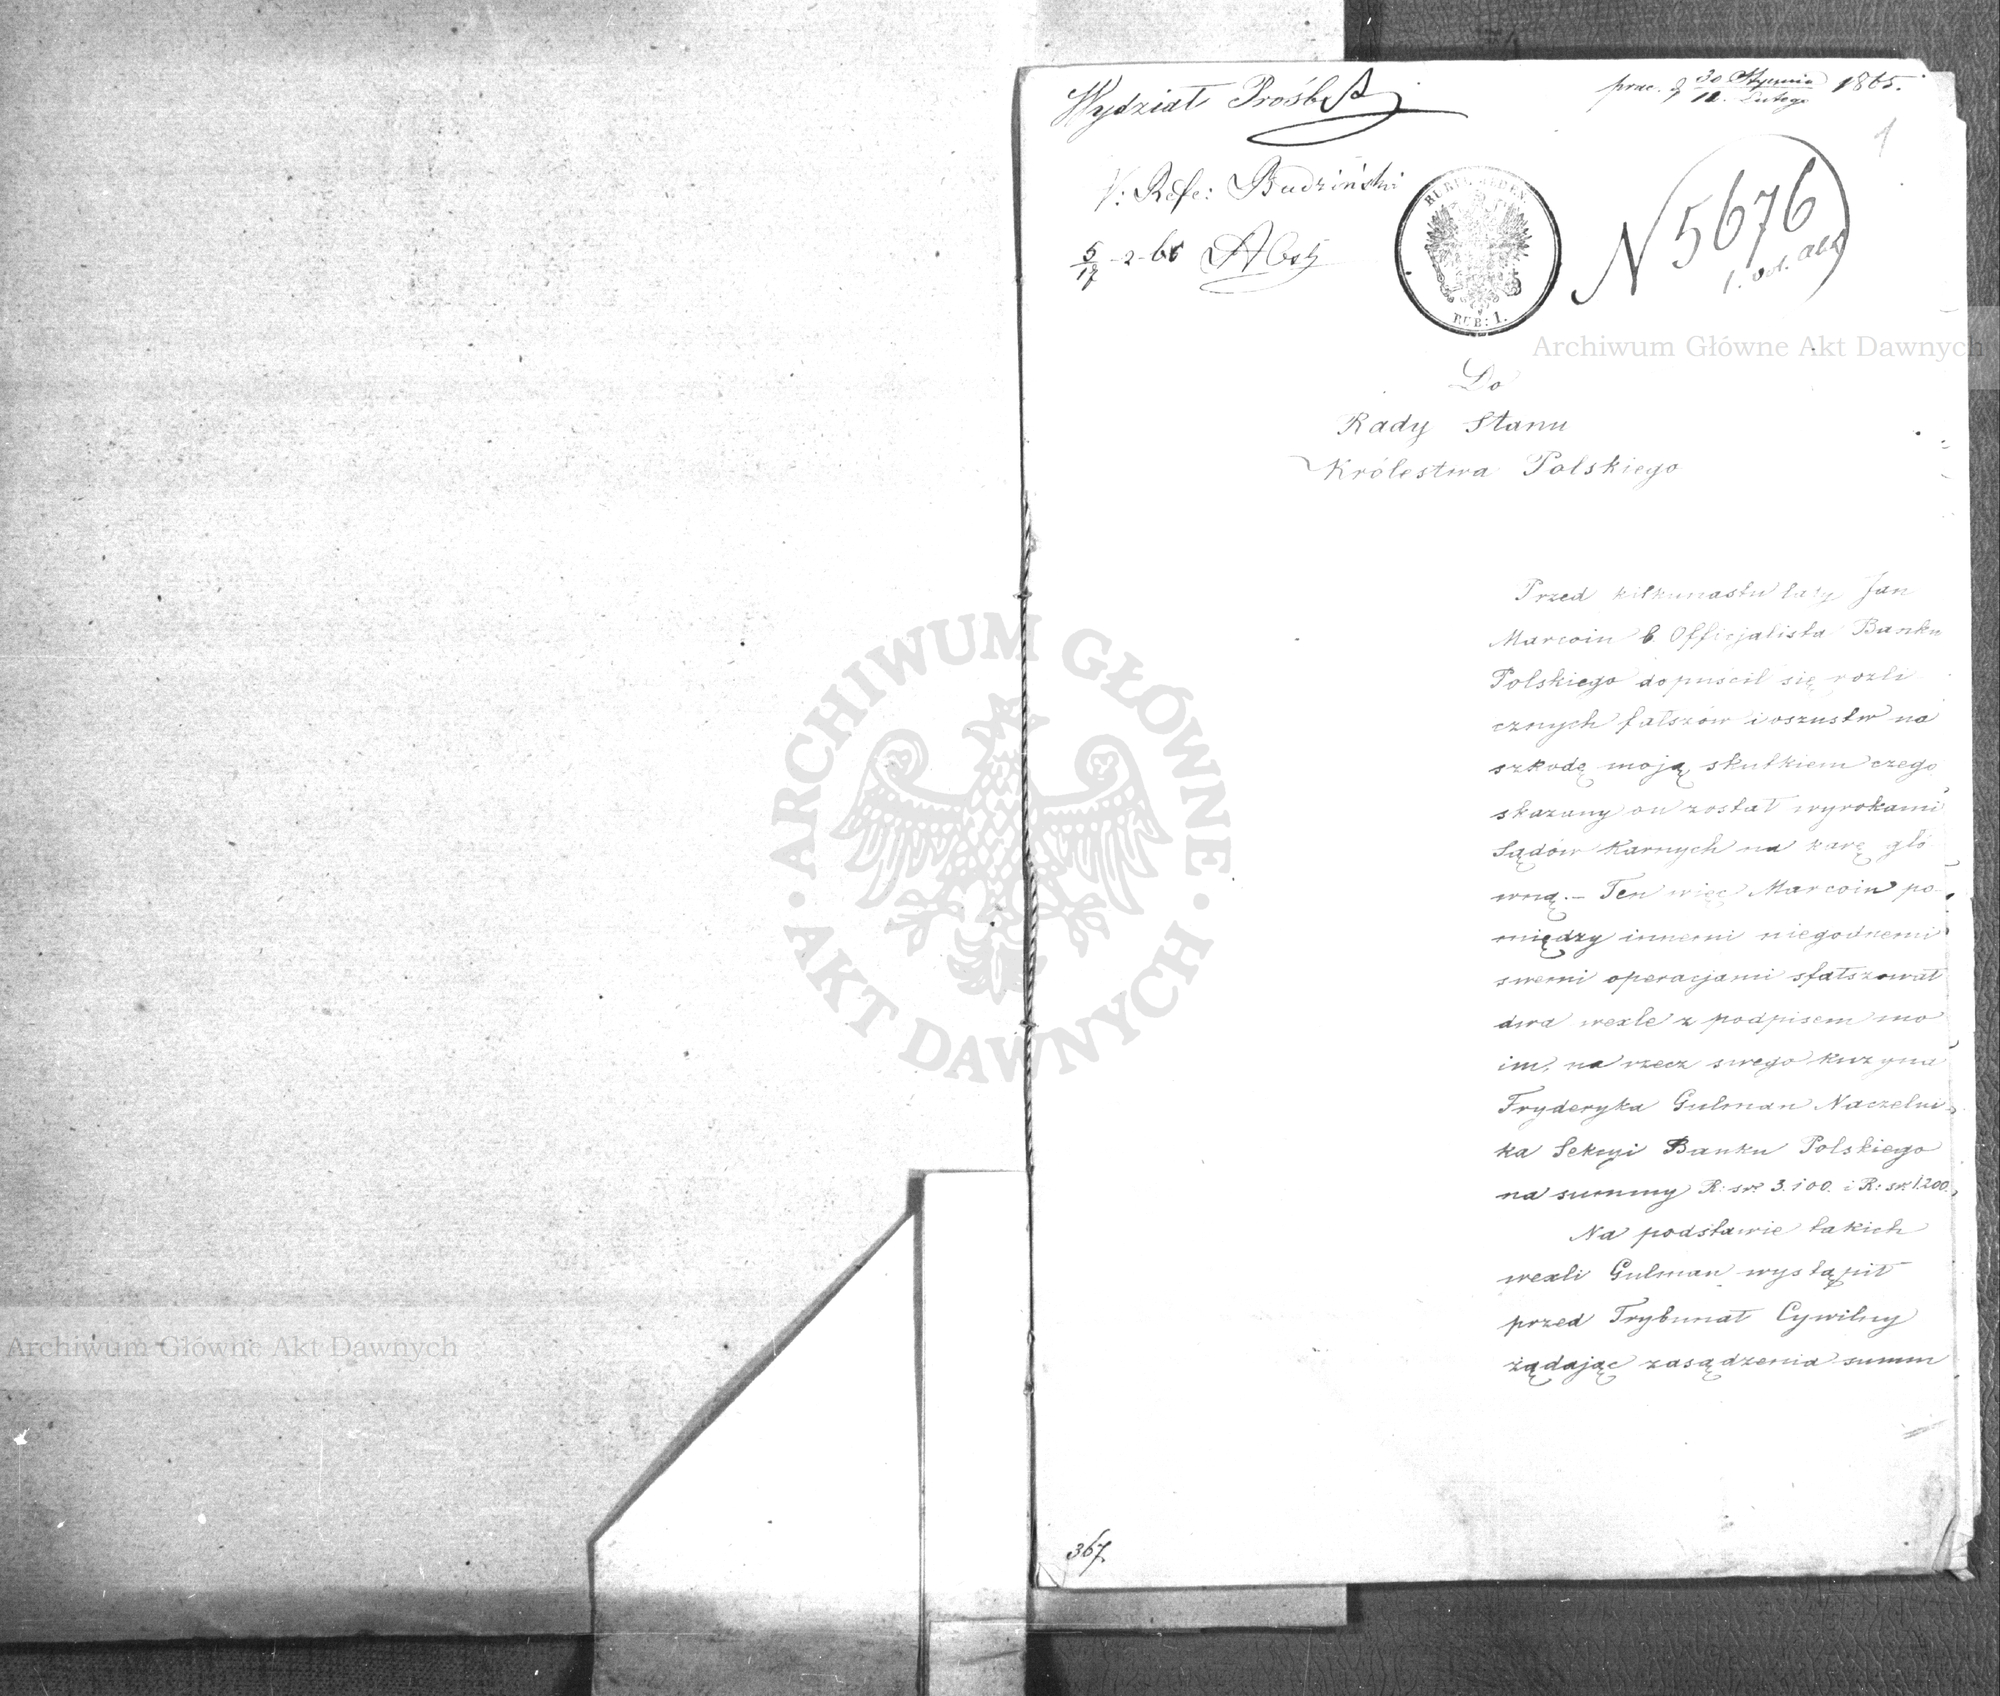 Wydział Prośb
prac. d 30 Stycznia 1865.
12. Lutego
1
V: Refe: Budziński
5/17 -2-65
N 5676
1. vol. akt
RUBEL JEDEN
RUB: 1.
Archiwum Główne Akt Dawnych
Do
Rady Stanu
Królestwa Polskiego
Przed kilkunastu laty Jan
Marcoin b. Officjalista Banku
Polskiego dopuścił się rozli
cznych fałszów i oszustw na
szkodę moją skutkiem czego
skazany on został wyrokami
Sądów Karnych na karę głó
wną. – Ten więc Marcoin po
między innemi niegodnemi
swemi operacjami sfałszował
dwa wexle z podpisem mo
im, na rzecz swego kuzyna
Fryderyka Gulman Naczelni
ka Sekcyi Banku Polskiego
na summy R: sr: 3.100. i R: sr: 1.200.
Na podstawie takich
wexli Gulman wystąpił
przed Trybunał Cywilny
żądając zasądzenia summ
367.
ARCHIWUM GŁÓWNE
AKT DAWNYCH
Archiwum Główne Akt Dawnych